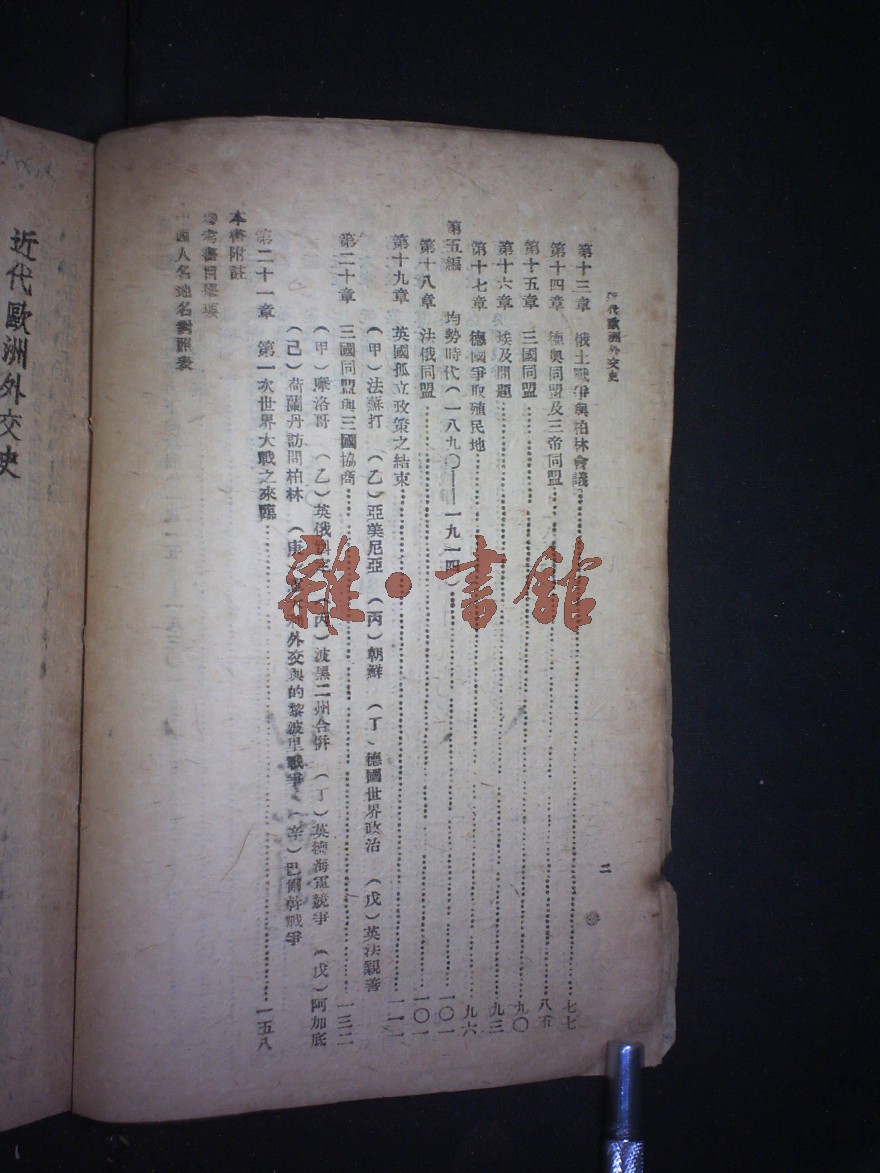 近代歐洲外交史
代歐洲外交史
二
第十三章 俄土戰爭與柏林會議 七七
第十四章 德奧同盟及三帝同盟 八五
第十五章 三國同盟 九〇
第十六章 埃及問題 九三
第十七章 德國爭取殖民地 九六
第五編 均勢時代(一八九〇——一九一四) 一〇一
第十八章 法俄同盟 一〇一
第十九章 英國孤立政策之結束 一一一
(甲)法蘇打 (乙)亞美尼亞 (丙)朝鮮 (丁)德國世界政治 (戊)英法親善
第二十章 三國同盟與三國協商 一三二
(甲)摩洛哥 (乙)英俄 (丙)波黑二州合併 (丁)英德海軍競爭 (戊)阿加底
(己)荷蘭丹訪問柏林 (庚) 外交與的黎波里戰爭 (辛)巴爾幹戰爭
第二十一章 第一次世界大戰之來臨 一五八
本書附註
參考書目
西人名地名對照表
雜·書館